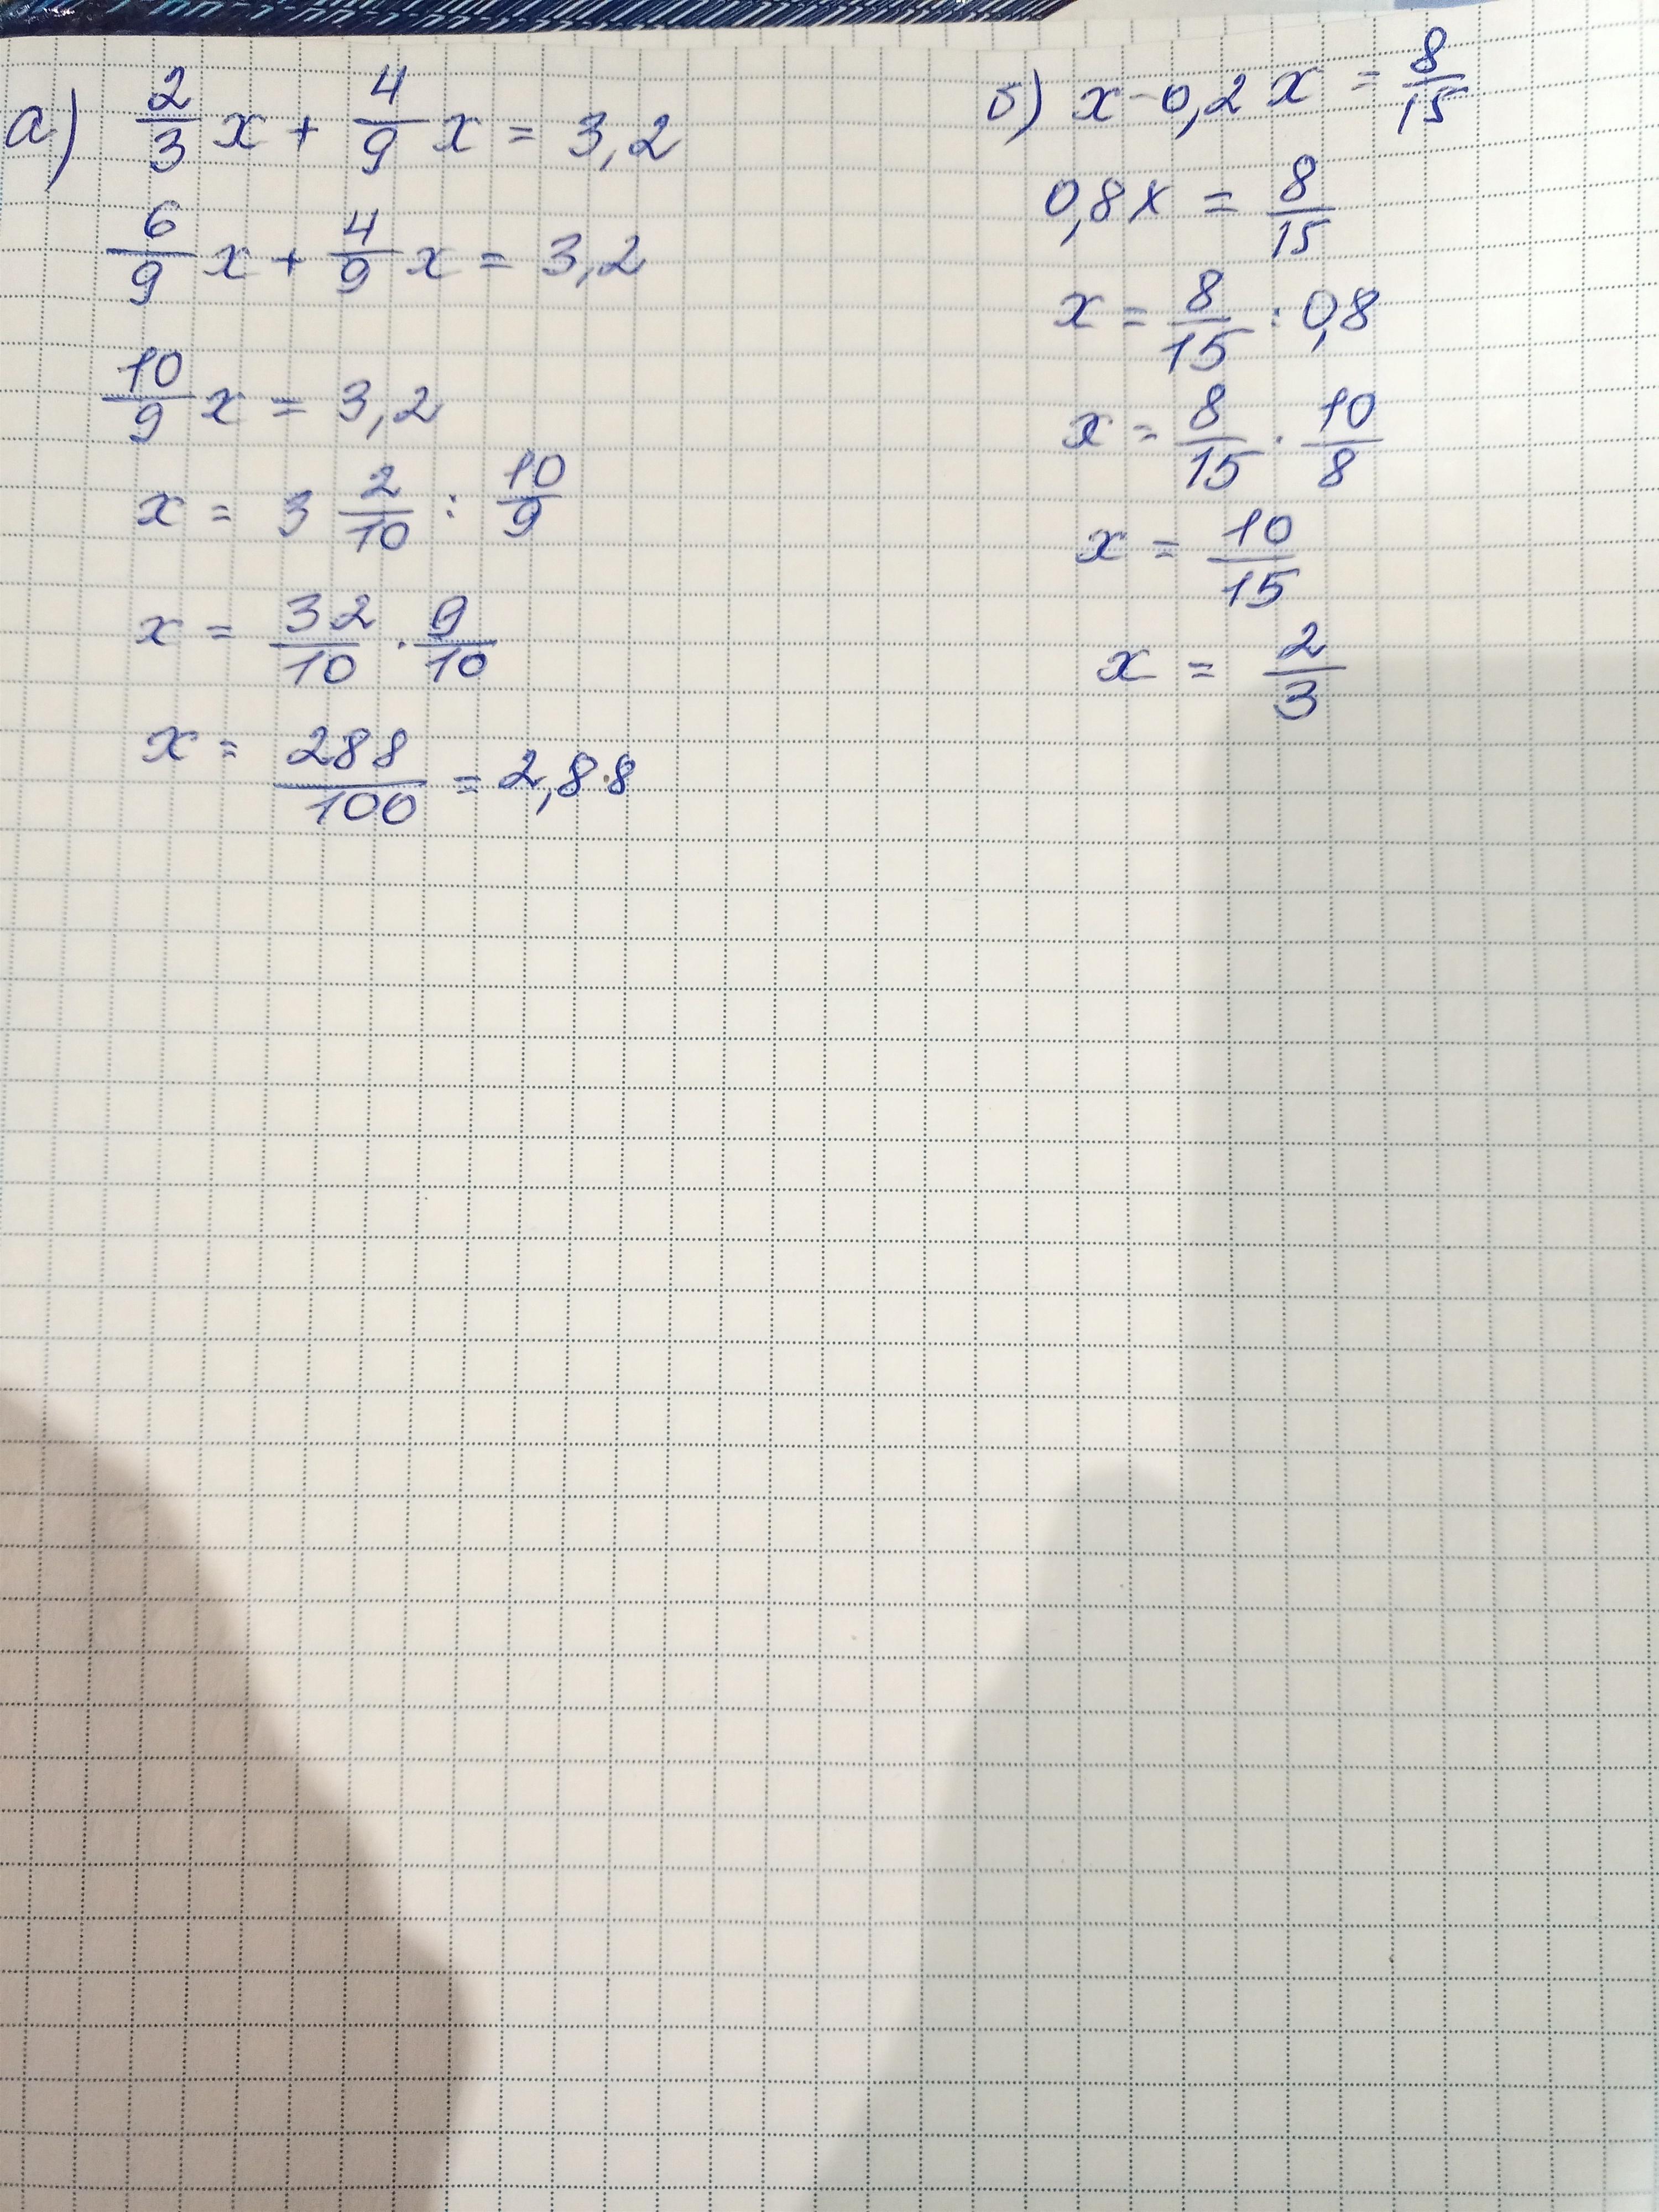 а) 2/3 x + 4/9 x = 3,2
6/9 x + 4/9 x = 3,2
10/9 x = 3,2
x = 3 2/10 : 10/9
x = 32/10 · 9/10
x = 288/100 = 2,88
б) x - 0,2 x = 8/15
0,8x = 8/15
x = 8/15 : 0,8
x = 8/15 · 10/8
x = 10/15
x = 2/3